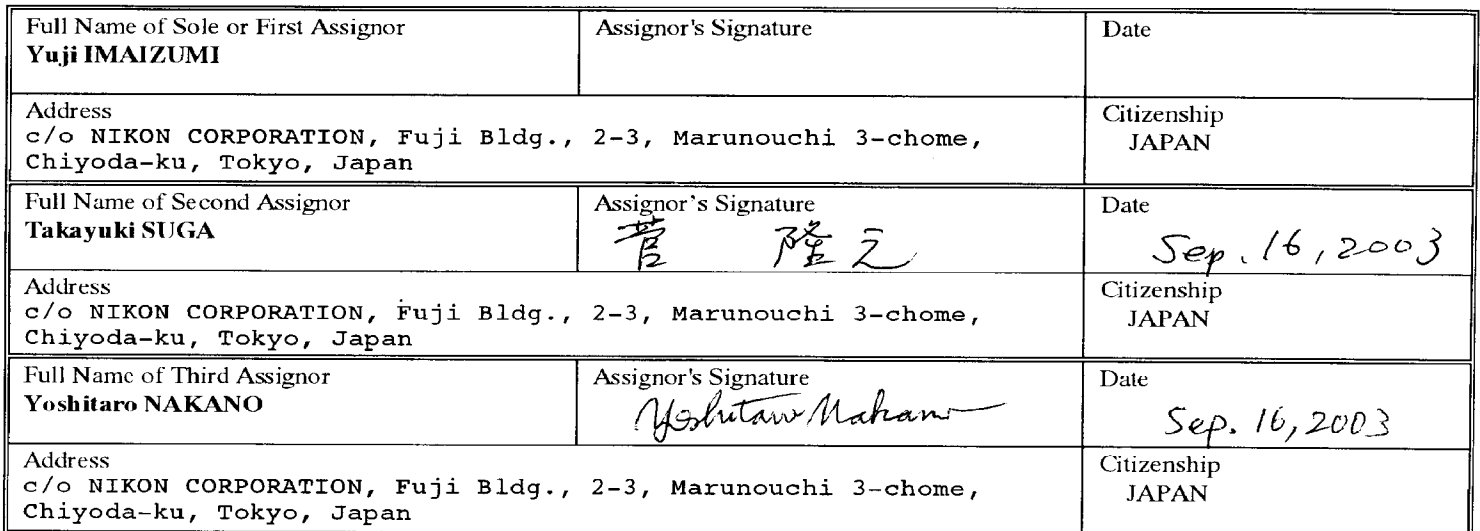 Full Name of Sole or First Assignor
Yuji IMAIZUMI
Assignor's Signature
Date
Address
c/o NIKON CORPORATION, Fuji Bldg., 2-3, Marunouchi 3-chome,
Chiyoda-ku, Tokyo, Japan
Citizenship
JAPAN
Full Name of Second Assignor
Takayuki SUGA
Assignor's Signature
菅 隆之
Date
Sep. 16, 2003
Address
c/o NIKON CORPORATION, Fuji Bldg., 2-3, Marunouchi 3-chome,
Chiyoda-ku, Tokyo, Japan
Citizenship
JAPAN
Full Name of Third Assignor
Yoshitaro NAKANO
Assignor's Signature
Yoshitaro Nakano
Date
Sep. 16, 2003
Address
c/o NIKON CORPORATION, Fuji Bldg., 2-3, Marunouchi 3-chome,
Chiyoda-ku, Tokyo, Japan
Citizenship
JAPAN